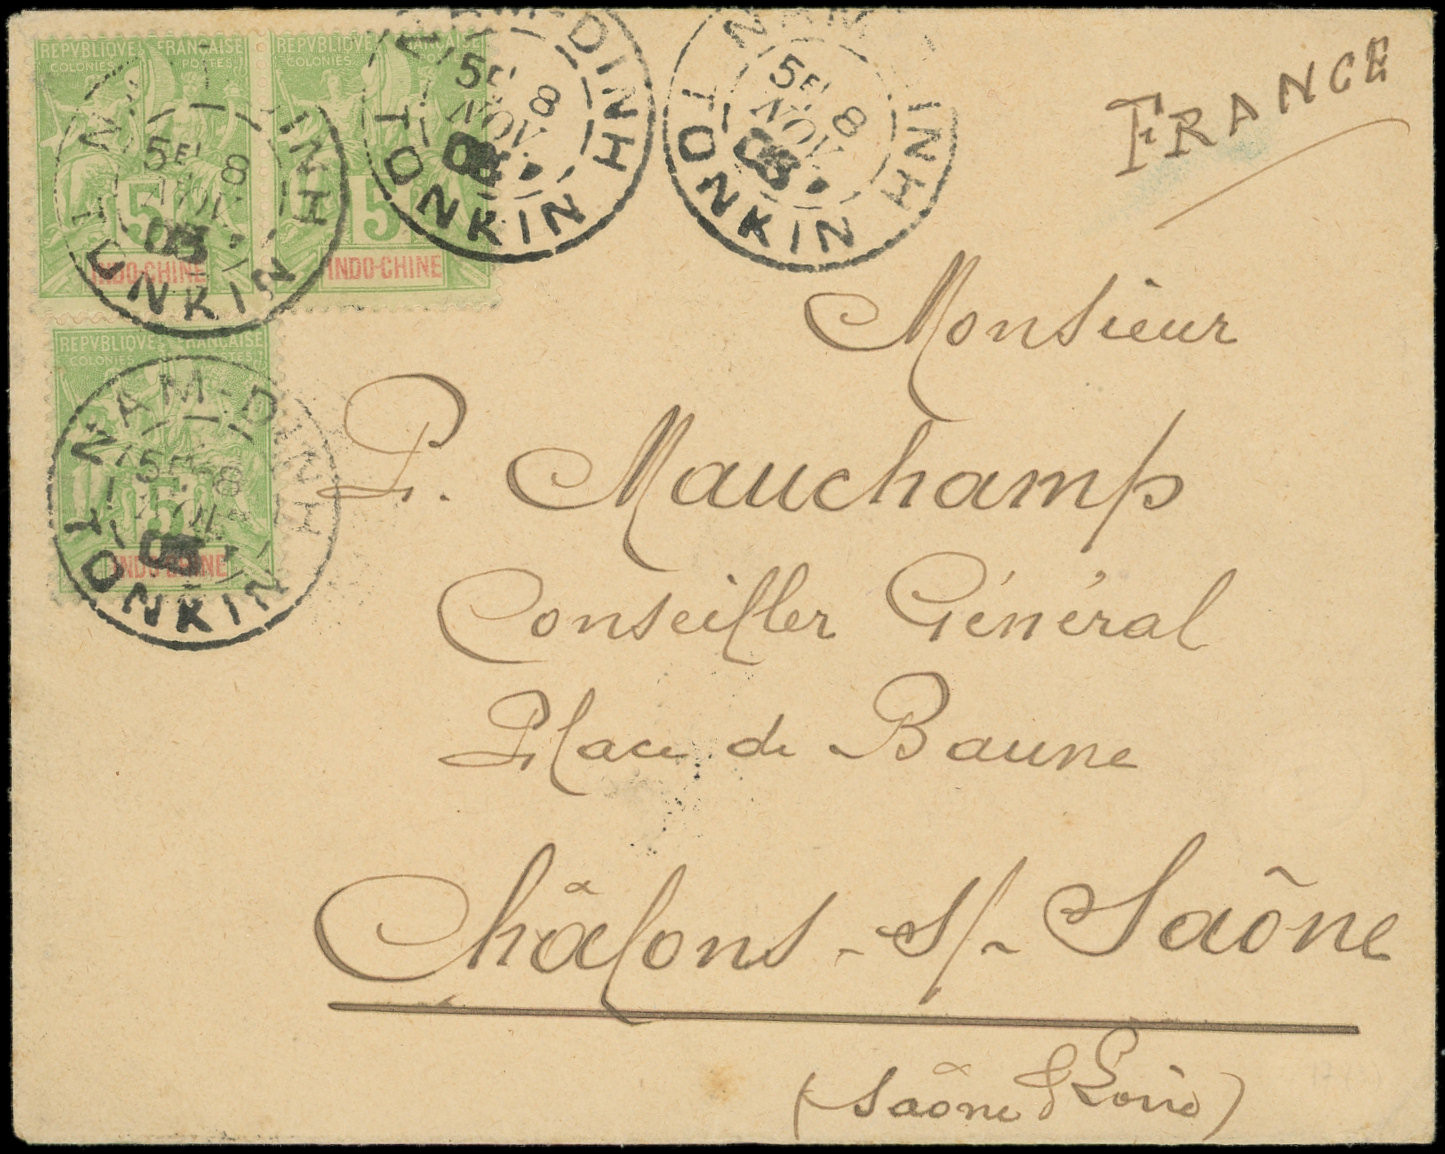 REPVBLIQVE FRANCAISE
COLONIES DE POSTES
5
INDO-CHINE
REPVBLIQVE FRANCAISE
COLONIES
5
INDO-CHINE
REPVBLIQVE FRANCAISE
COLONIES POSTES
5
INDO-CHINE
NAM-DINH
5E 8
NOV
03
TONKIN
NAM-DINH
5E 8
NOV
TONKIN
NAM-DINH
5E 8
NOV
TONKIN
NAM-DINH
5E 8
TONKIN
FRANCE
Monsieur
P. Mauchamp
Conseiller Général
Place de Baune
Châlons-s/-Saône
(Saône & Loire)